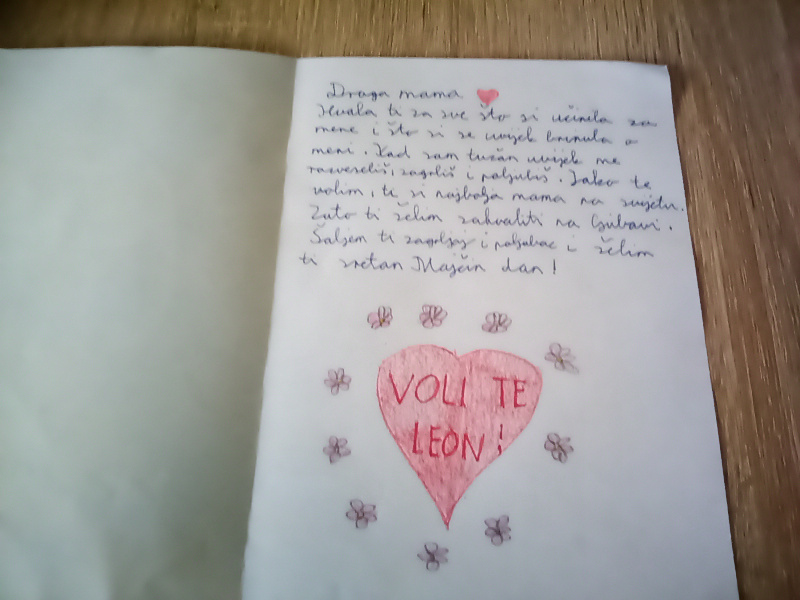 Draga mama
Hvala ti za sve što si učinila za
mene i što si se uvijek brinula o
meni. Kad sam tužan uvijek me
razveseliš, zagrliš i poljubiš. Jako te
volim, ti si najbolja mama na svijetu.
Zato ti želim zahvaliti na ljubavi.
Šaljem ti zagrljaj i poljubac i želim
ti sretan Majčin dan!
VOLI TE
LEON!